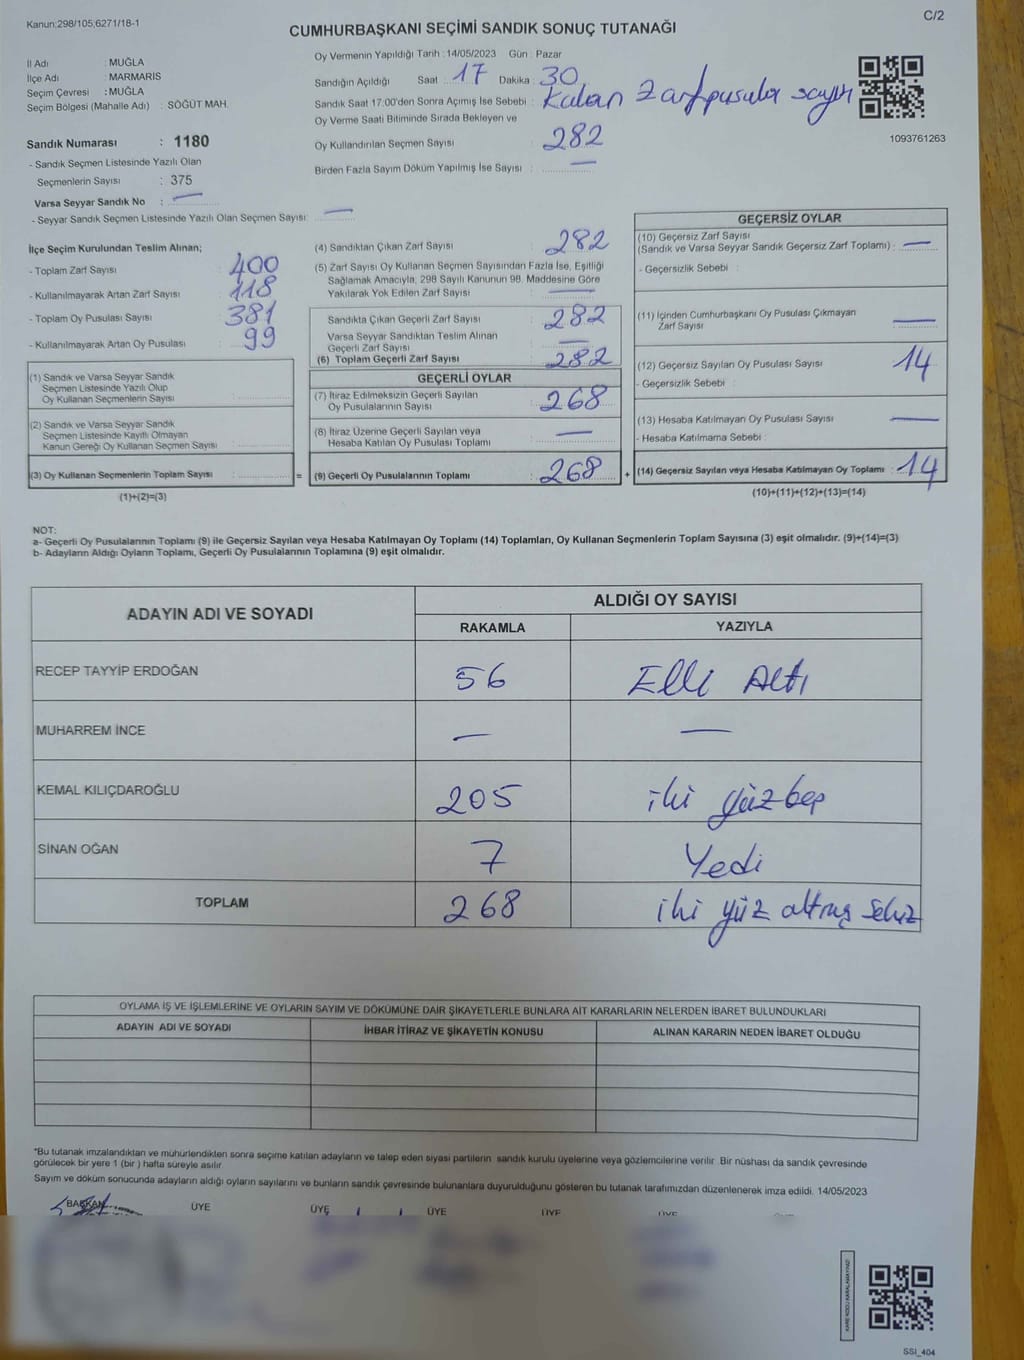 Kanun:298/105,6271/18-1
C/2
CUMHURBAŞKANI SEÇİMİ SANDIK SONUÇ TUTANAĞI
Oy Vermenin Yapıldığı Tarih : 14/05/2023 Gün : Pazar
İl Adı : MUĞLA
İlçe Adı : MARMARİS
Seçim Çevresi : MUĞLA
Seçim Bölgesi (Mahalle Adı) : SÖĞÜT MAH.
Sandığın Açıldığı Saat : 17 Dakika : 30
Sandık Saat 17.00'den Sonra Açımış İse Sebebi : Kalan Zarfpusula sayım
Oy Verme Saati Bitiminde Sırada Bekleyen ve
Oy Kullandırılan Seçmen Sayısı : 282
Birden Fazla Sayım Döküm Yapılmış İse Sayısı : —
1093761263
Sandık Numarası : 1180
- Sandık Seçmen Listesinde Yazılı Olan
Seçmenlerin Sayısı : 375
Varsa Seyyar Sandık No : —
- Seyyar Sandık Seçmen Listesinde Yazılı Olan Seçmen Sayısı: —
İlçe Seçim Kurulundan Teslim Alınan;
- Toplam Zarf Sayısı : 400
- Kullanılmayarak Artan Zarf Sayısı : 118
- Toplam Oy Pusulası Sayısı : 381
- Kullanılmayarak Artan Oy Pusulası : 99
(1) Sandık ve Varsa Seyyar Sandık
Seçmen Listesinde Yazılı Olup
Oy Kullanan Seçmenlerin Sayısı :
(2) Sandık ve Varsa Seyyar Sandık
Seçmen Listesinde Kayıtlı Olmayan
Kanun Gereği Oy Kullanan Seçmen Sayısı :
(3) Oy Kullanan Seçmenlerin Toplam Sayısı : =
(1)+(2)=(3)
(4) Sandıktan Çıkan Zarf Sayısı : 282
(5) Zarf Sayısı Oy Kullanan Seçmen Sayısından Fazla İse, Eşitliği
Sağlamak Amacıyla; 298 Sayılı Kanunun 98. Maddesine Göre
Yakılarak Yok Edilen Zarf Sayısı : —
Sandıkta Çıkan Geçerli Zarf Sayısı : 282
Varsa Seyyar Sandıktan Teslim Alınan
Geçerli Zarf Sayısı : —
(6) Toplam Geçerli Zarf Sayısı : 282
GEÇERLİ OYLAR
(7) İtiraz Edilmeksizin Geçerli Sayılan
Oy Pusulalarının Sayısı : 268
(8) İtiraz Üzerine Geçerli Sayılan veya
Hesaba Katılan Oy Pusulası Toplamı : —
(9) Geçerli Oy Pusulalarının Toplamı : 268 +
GEÇERSİZ OYLAR
(10) Geçersiz Zarf Sayısı
(Sandık ve Varsa Seyyar Sandık Geçersiz Zarf Toplamı) : —
- Geçersizlik Sebebi :
(11) İçinden Cumhurbaşkanı Oy Pusulası Çıkmayan
Zarf Sayısı : —
(12) Geçersiz Sayılan Oy Pusulası Sayısı : 14
- Geçersizlik Sebebi :
(13) Hesaba Katılmayan Oy Pusulası Sayısı : —
- Hesaba Katılmama Sebebi :
(14) Geçersiz Sayılan veya Hesaba Katılmayan Oy Toplamı : 14
(10)+(11)+(12)+(13)=(14)
NOT:
a- Geçerli Oy Pusulalarının Toplamı (9) ile Geçersiz Sayılan veya Hesaba Katılmayan Oy Toplamı (14) Toplamları, Oy Kullanan Seçmenlerin Toplam Sayısına (3) eşit olmalıdır. (9)+(14)=(3)
b- Adayların Aldığı Oyların Toplamı, Geçerli Oy Pusulalarının Toplamına (9) eşit olmalıdır.
ADAYIN ADI VE SOYADI
ALDIĞI OY SAYISI
RAKAMLA YAZIYLA
RECEP TAYYİP ERDOĞAN 56 Elli Altı
MUHARREM İNCE — —
KEMAL KILIÇDAROĞLU 205 iki yüzbeş
SİNAN OĞAN 7 Yedi
TOPLAM 268 iki yüz altmış Sekiz
OYLAMA İŞ VE İŞLEMLERİNE VE OYLARIN SAYIM VE DÖKÜMÜNE DAİR ŞİKAYETLERLE BUNLARA AİT KARARLARIN NELERDEN İBARET BULUNDUKLARI
ADAYIN ADI VE SOYADI İHBAR İTİRAZ VE ŞİKAYETİN KONUSU ALINAN KARARIN NEDEN İBARET OLDUĞU
*Bu tutanak imzalandıktan ve mühürlendikten sonra seçime katılan adayların ve talep eden siyasi partilerin sandık kurulu üyelerine veya gözlemcilerine verilir. Bir nüshası da sandık çevresinde
görülecek bir yere 1 (bir ) hafta süreyle asılır.
Sayım ve döküm sonucunda adayların aldığı oyların sayılarını ve bunların sandık çevresinde bulunanlara duyurulduğunu gösteren bu tutanak tarafımızdan düzenlenerek imza edildi. 14/05/2023
BAŞKAN ÜYE ÜYE ÜYE ÜYE ÜYE
KARE KODU KARALAMAYINIZ!
SSI_404